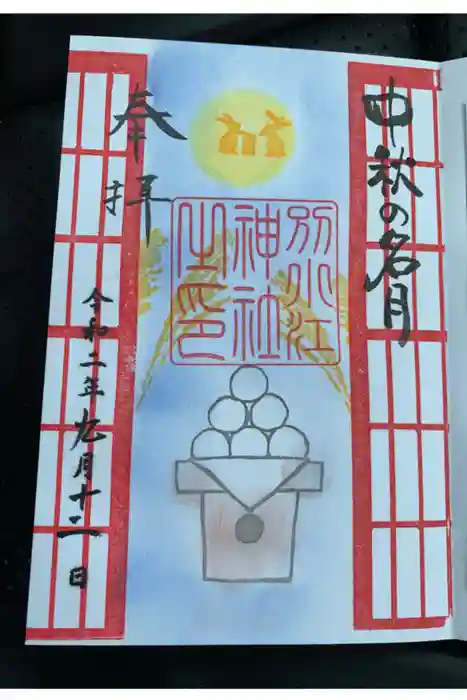 中秋の名月
別小江
神社
之印
奉拝
令和二年九月十二日